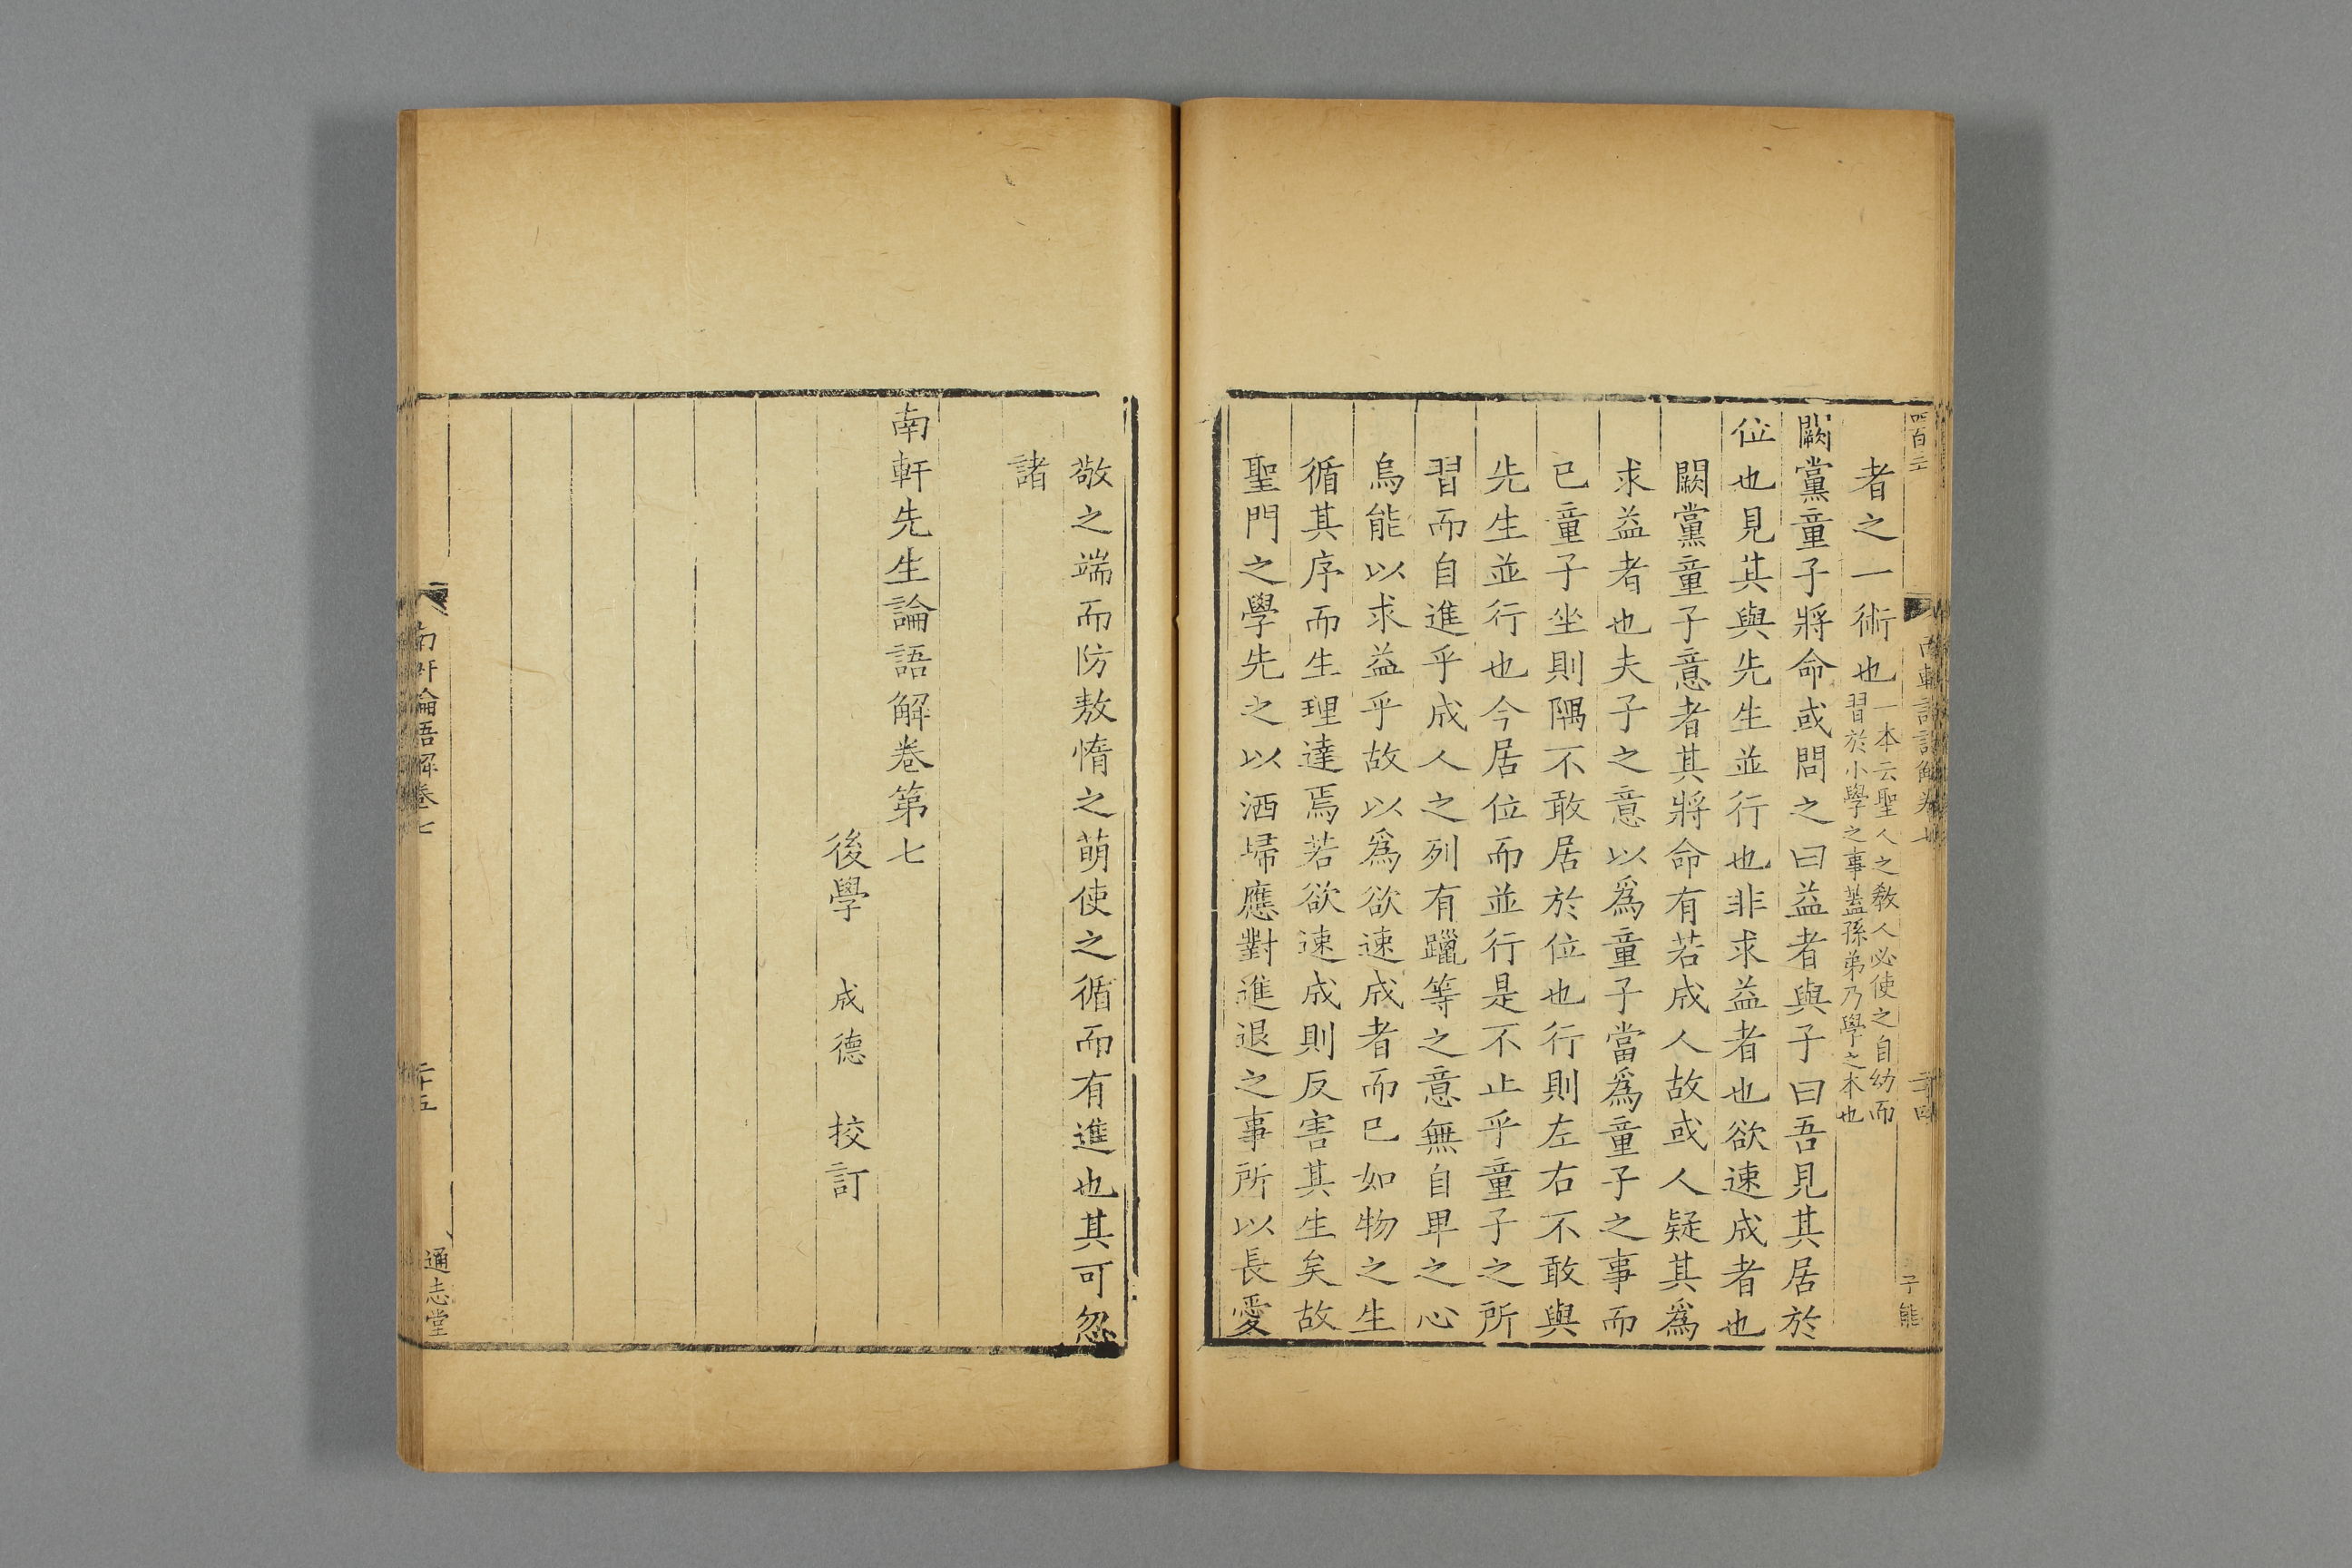 四百二
者之一術也一本云聖人之教人必使之自幼而
習於小學之事蓋孫弟乃學之本也
闕黨童子將命或問之曰益者與子曰吾見其居於
位也見其與先生並行也非求益者也欲速成者也
闕黨童子意者其將命有若成人故或人疑其爲
求益者也夫子之意以爲童子當爲童子之事而
已童子坐則隅不敢居於位也行則左右不敢與
先生並行也今居位而並行是不止乎童子之所
習而自進乎成人之列有躐等之意無自卑之心
烏能以求益乎故以爲欲速成者而已如物之生
循其序而生理達焉若欲速成則反害其生矣故
聖門之學先之以洒埽應對進退之事所以長愛
敬之端而防敖惰之萌使之循而有進也其可忽
諸
南軒先生論語解卷第七
後學 成德 挍訂
南軒論語解卷七
二十五
通志堂